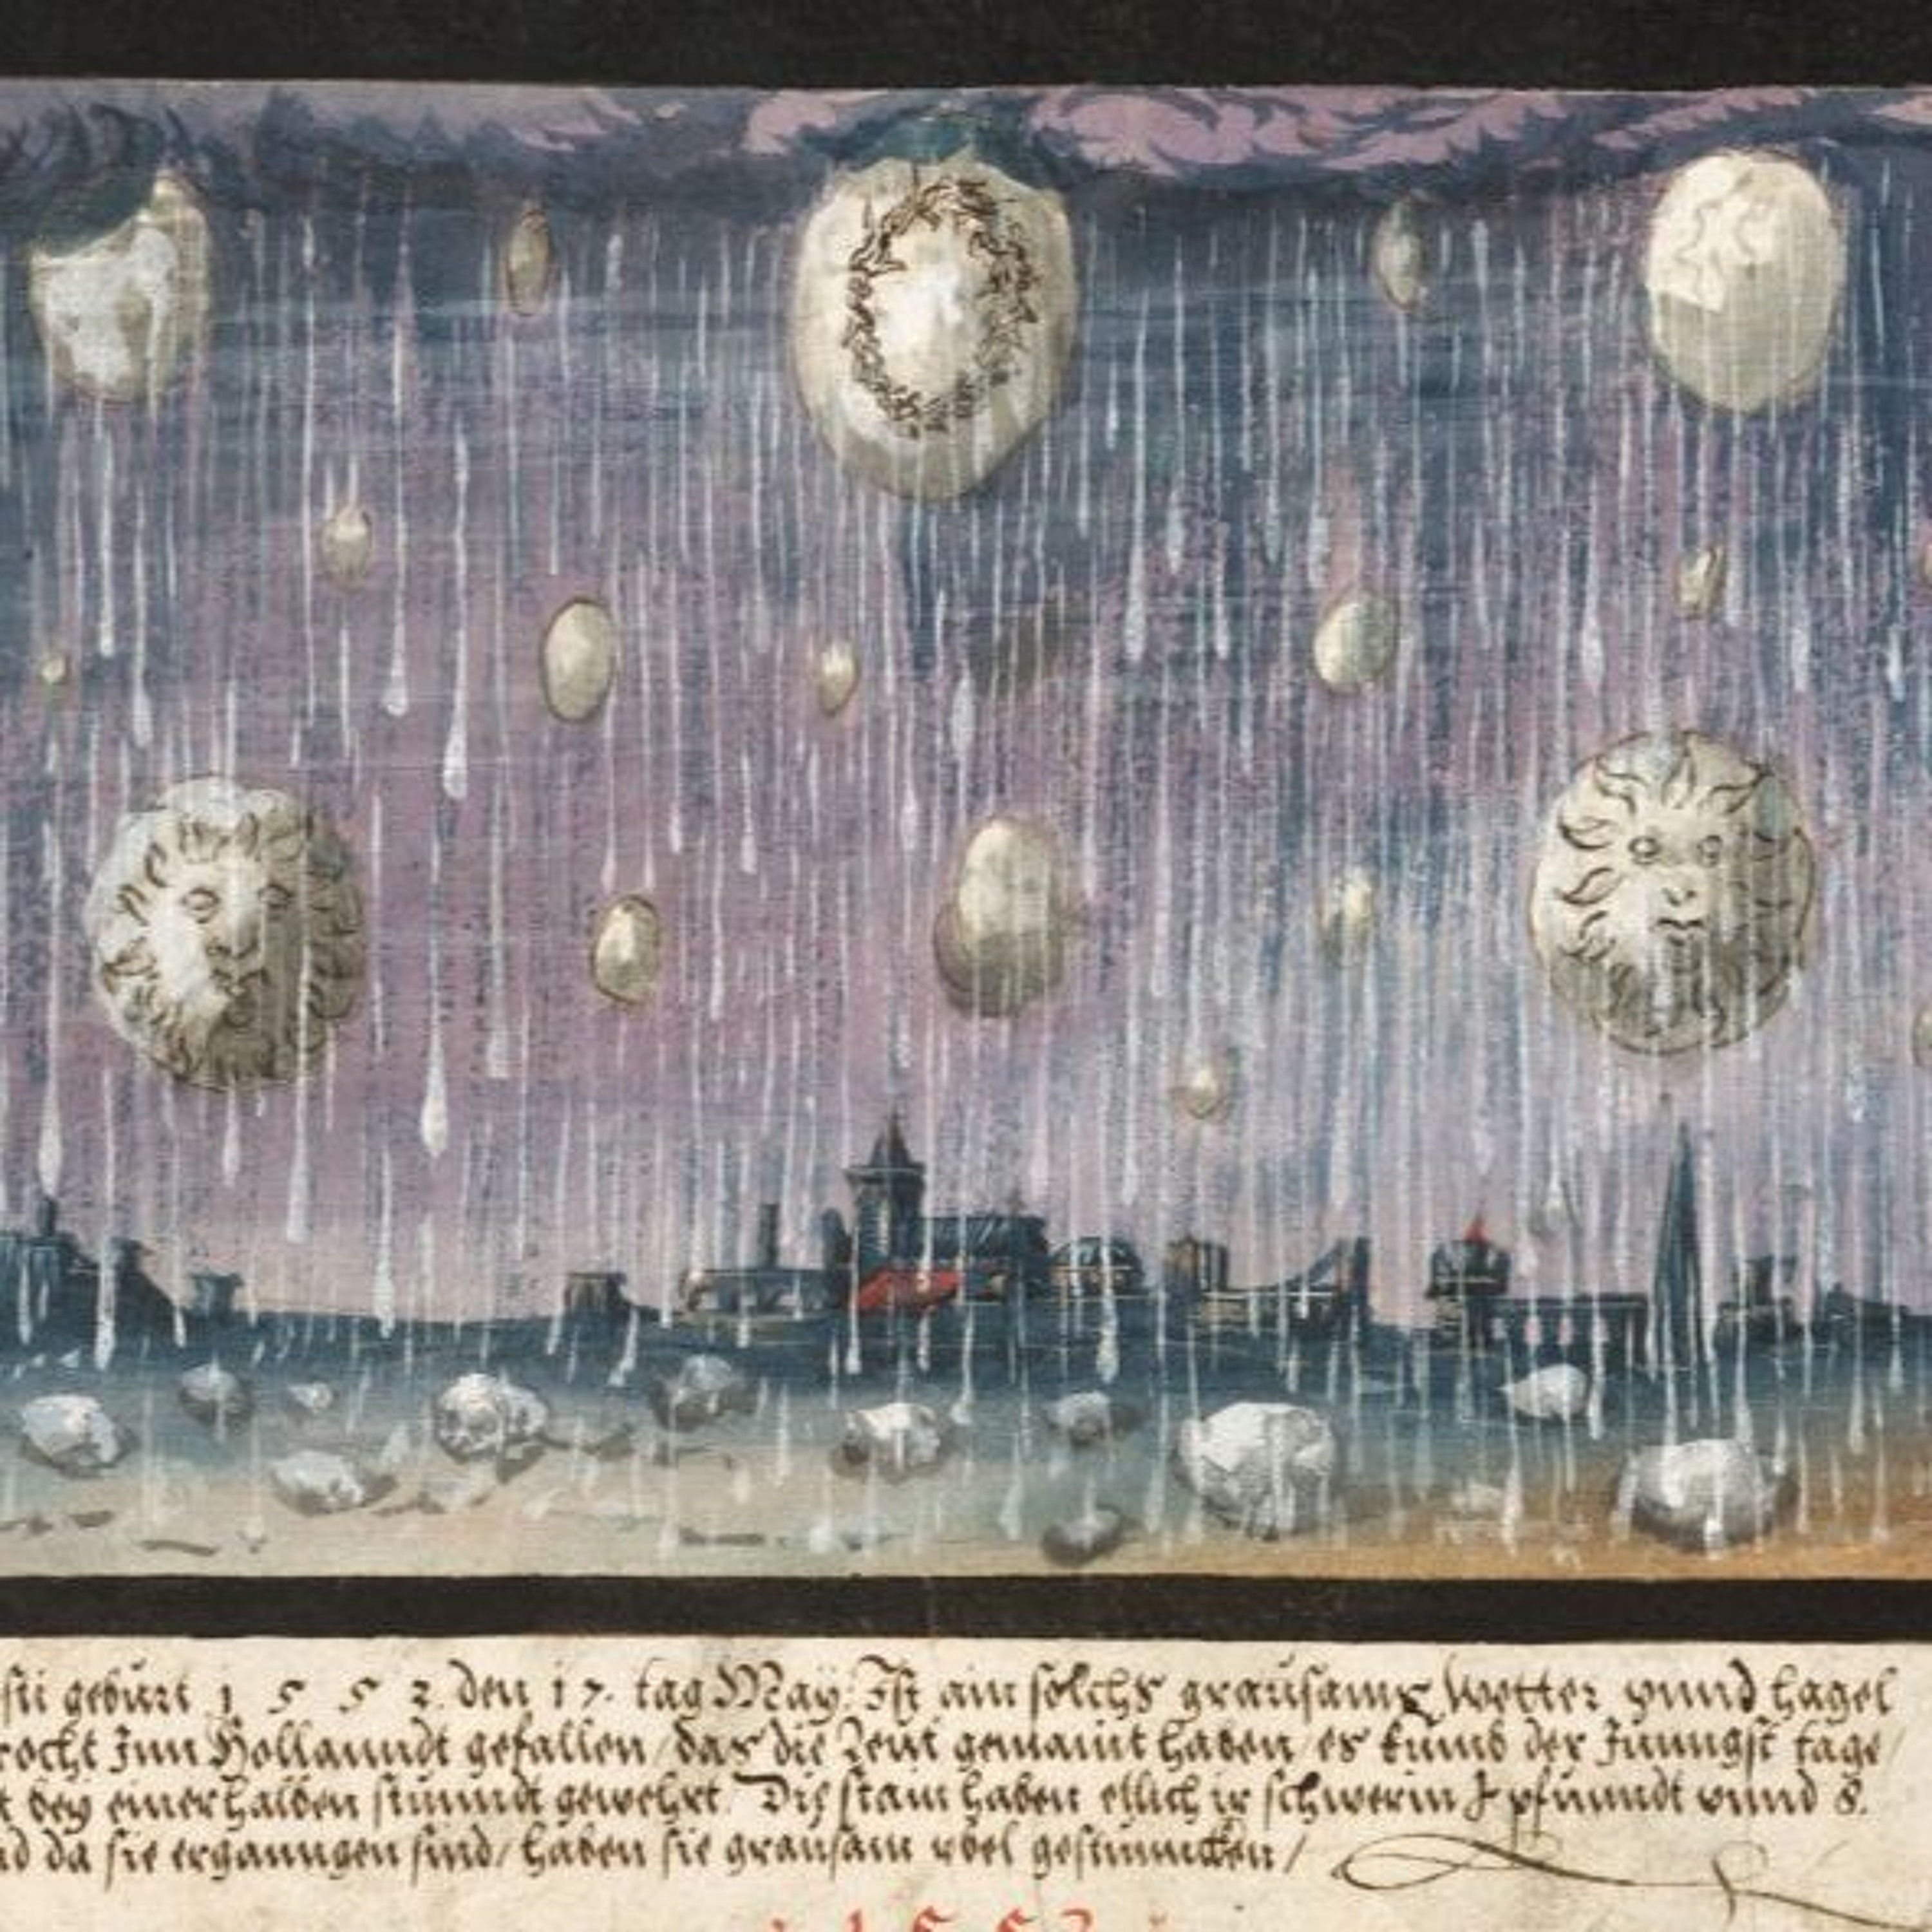 sti geburt 1 5 5 2. den 17. tag May. Ist ain solchs grausams Wetter vnnd hagel
rocht Inn Hollanndt gefallen / das die Leut gemaint haben / es kumb der Jünngst tage /
t bey einer halben stunndt gewehrt. Die stain haben etlich ir schwerin pfunndt vnnd 8.
nd da sie erganngen sind / haben sie grausam vbel gestunncken /
1552